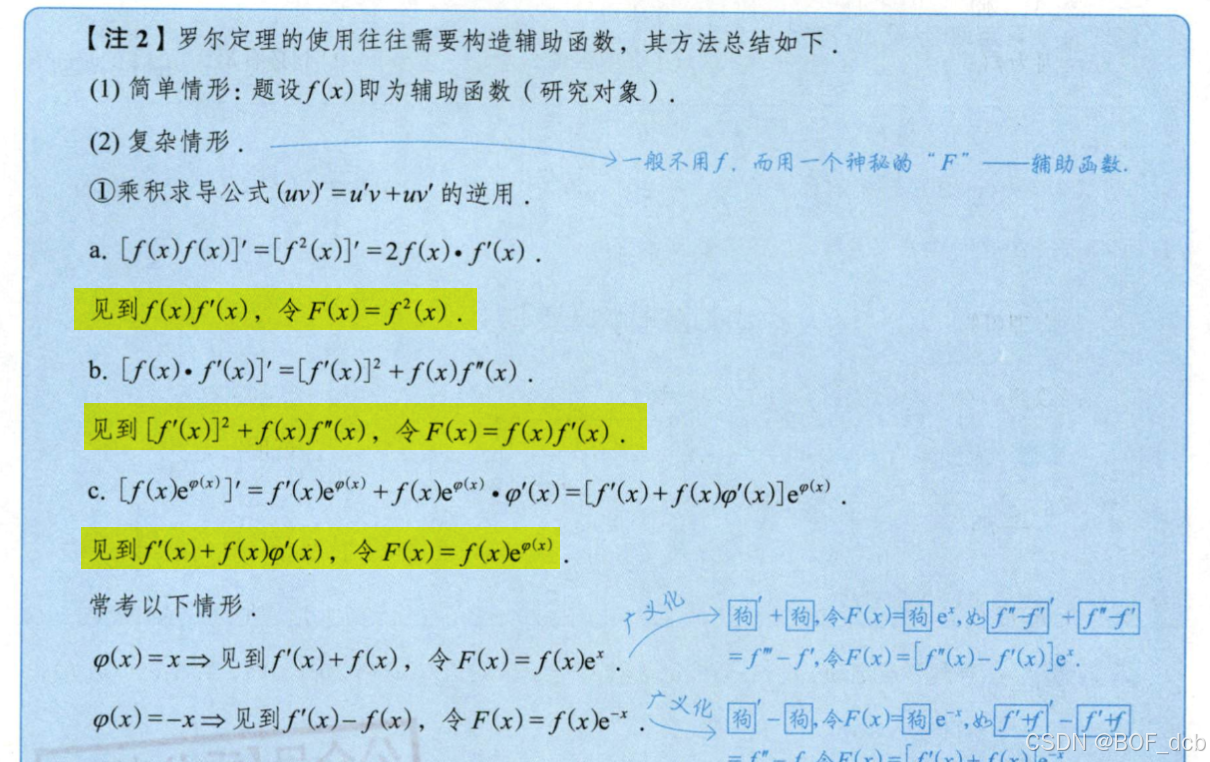 【注2】罗尔定理的使用往往需要构造辅助函数，其方法总结如下．
(1) 简单情形：题设f(x)即为辅助函数（研究对象）．
(2) 复杂情形．
一般不用f，而用一个神秘的“F”——辅助函数．
①乘积求导公式(uv)′=u′v+uv′的逆用．
a. [f(x)f(x)]′=[f²(x)]′=2f(x)•f′(x)．
见到f(x)f′(x)，令F(x)=f²(x)．
b. [f(x)•f′(x)]′=[f′(x)]²+f(x)f″(x)．
见到[f′(x)]²+f(x)f″(x)，令F(x)=f(x)f′(x)．
c. [f(x)e^φ(x)]′=f′(x)e^φ(x)+f(x)e^φ(x)•φ′(x)=[f′(x)+f(x)φ′(x)]e^φ(x)．
见到f′(x)+f(x)φ′(x)，令F(x)=f(x)e^φ(x)．
常考以下情形．
广义化
狗′+狗，令F(x)=狗eˣ，如f″-f′′+f″-f′
φ(x)=x⇒见到f′(x)+f(x)，令F(x)=f(x)eˣ．
=f‴-f′，令F(x)=[f″(x)-f′(x)]eˣ．
广义化
狗′-狗，令F(x)=狗e⁻ˣ，如f′+f′-f′+f
φ(x)=-x⇒见到f′(x)-f(x)，令F(x)=f(x)e⁻ˣ．
CSDN @BOF_dcb